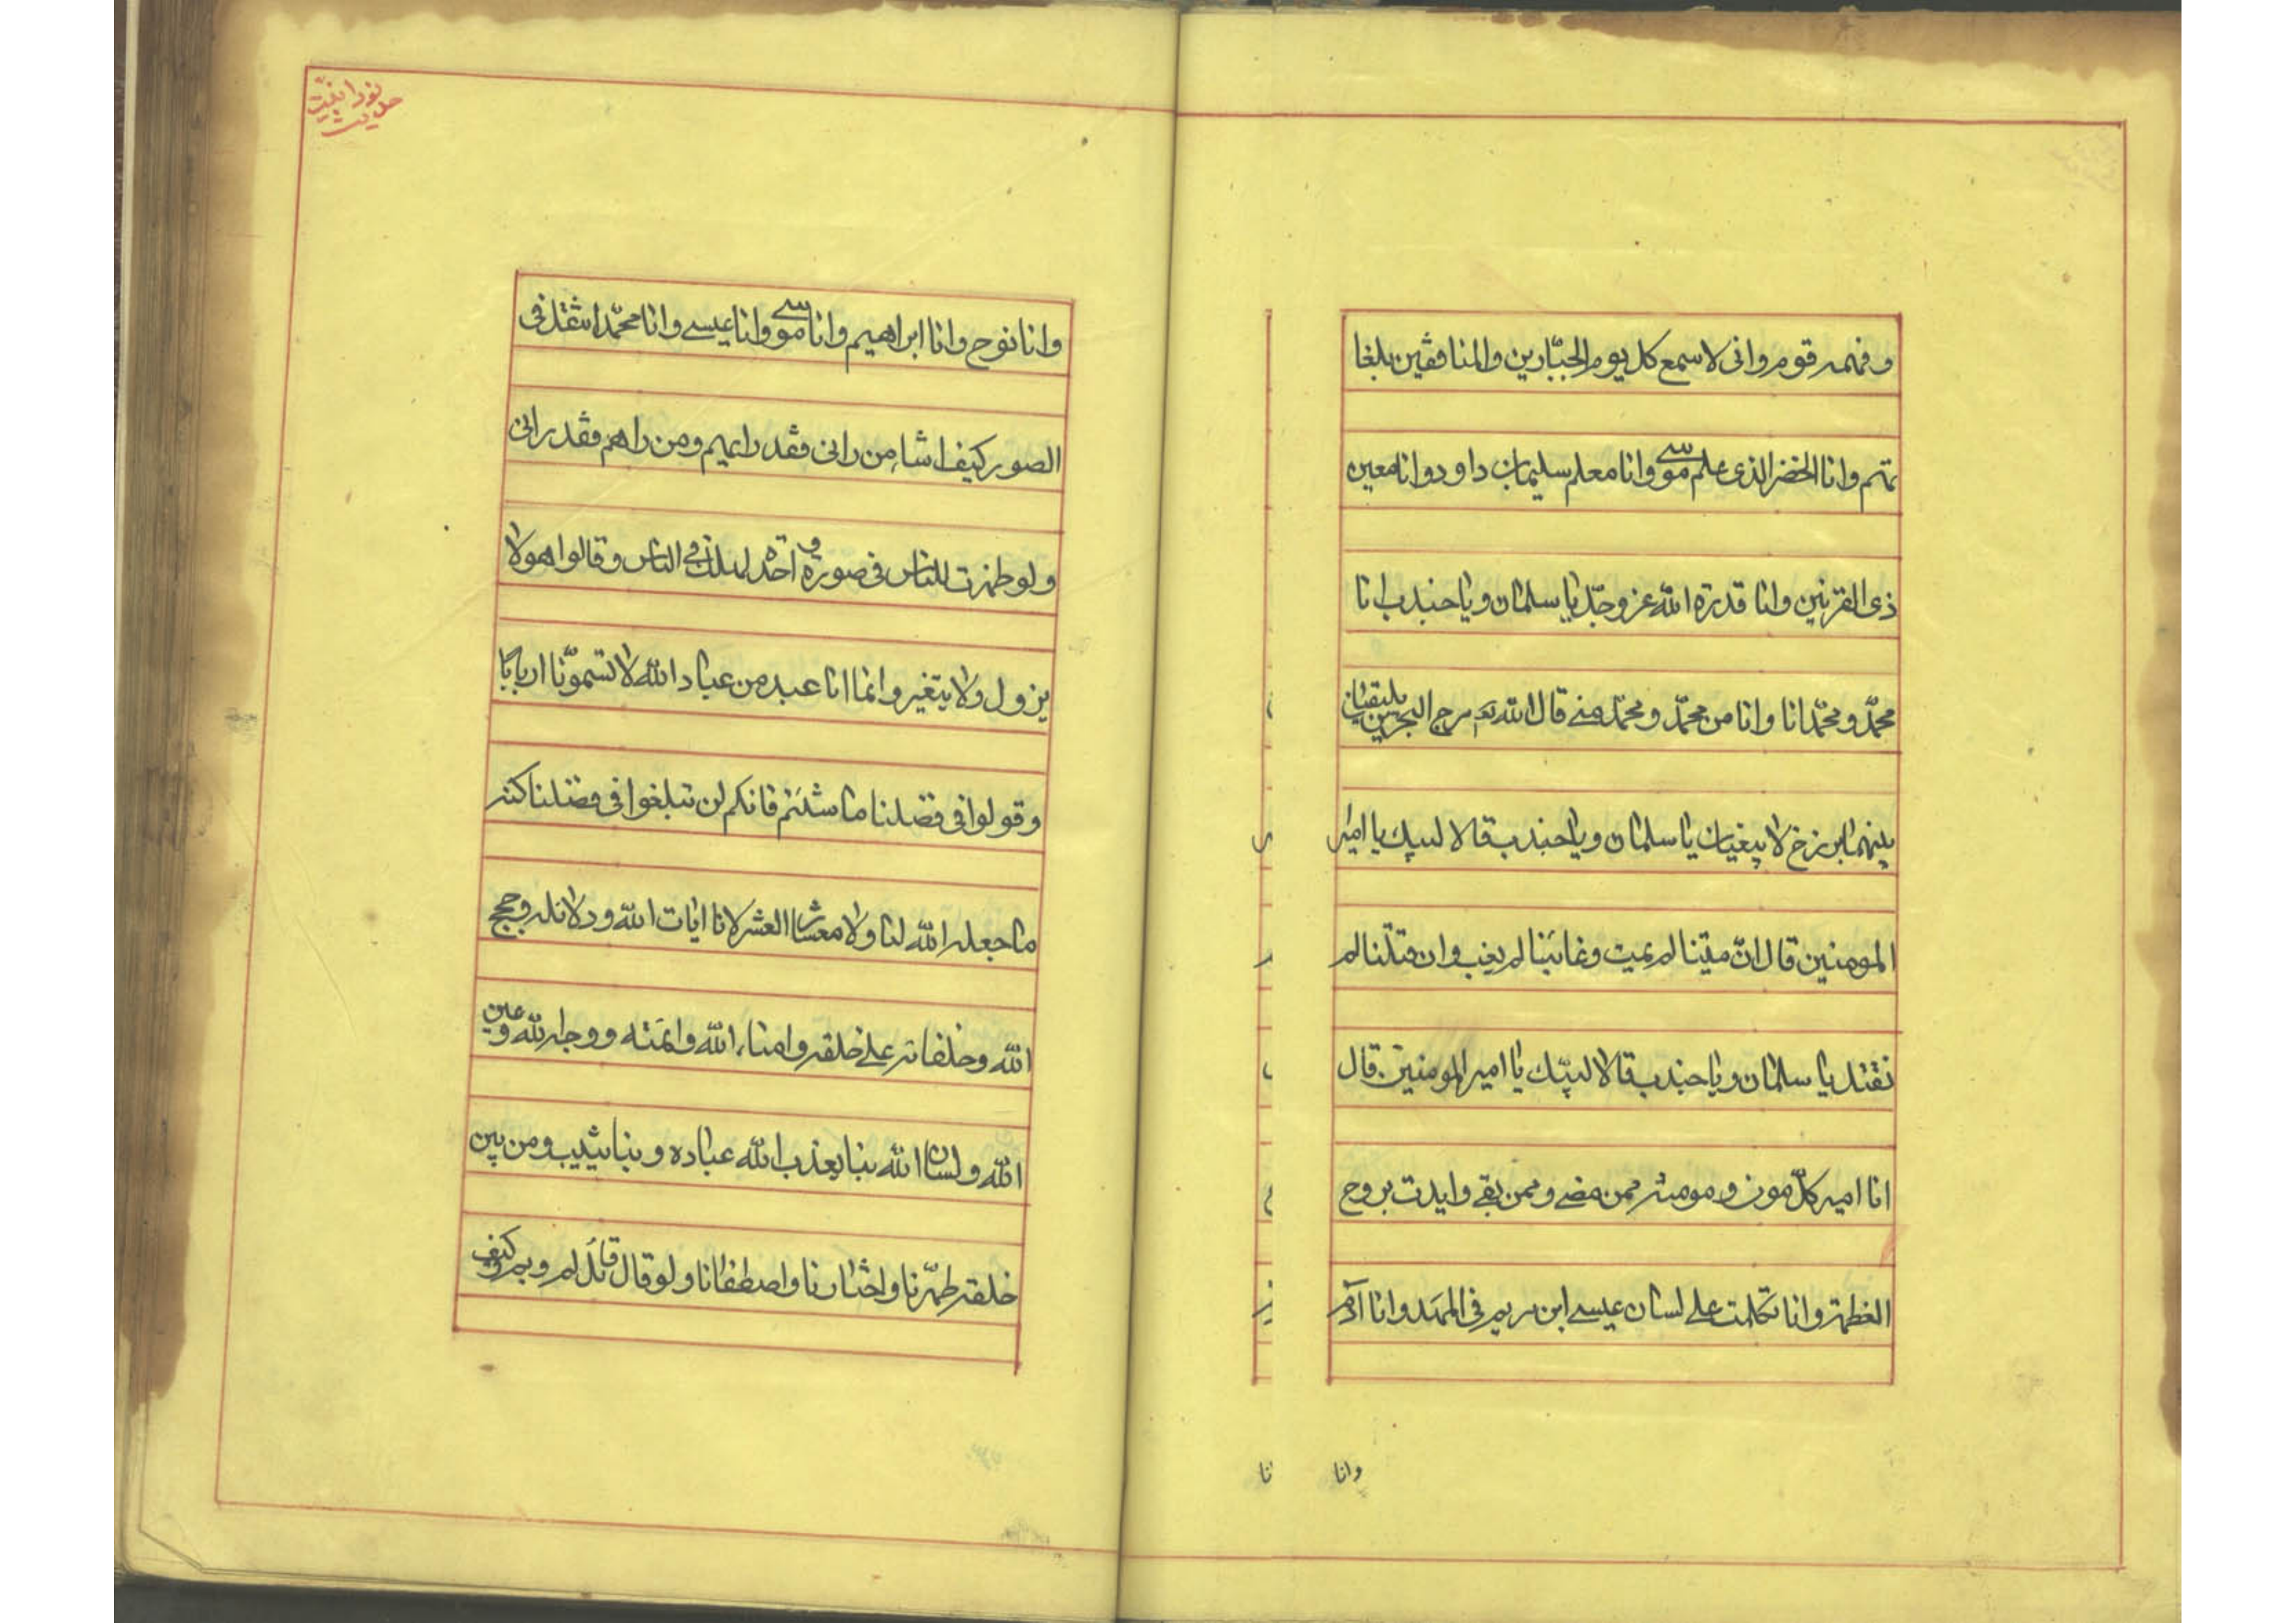 وفهمه قوم وانی لاسمع کل یوم الجبّارین والمنافقین بلغا
تهم وانا الخضر الذی علم موسے وانا معلم سلیمان داود وانا معین
ذی القرنین وانا قدرة الله عز وجدّ یا سلمان ویا جندب انا
محمّد ومحمّد انا وانا من محمّد ومحمّد منے قال الله تع مرج البحرین یلتقیان
بینهما برزخ لا یبغیان یا سلمان ویا جندب قالا لبیك یا امیر
المومنین قال انّ میّتنا لم یمیت وغائبنا لم یغب وان قتلنا لم
نقتد یا سلمان ویا جندب قالا لبیّك یا امیر المومنین قال
انا امیر کلّ مومن ومومنة ممن مضے وممن بقے وایدت بروح
العظمة وانا تکلمت علے لسان عیسے ابن مریم فی المهد وانا آدم
وانا
حدیث نورانیّت
وانا نوح وانا ابراهیم وانا موسے وانا عیسے وانا محمّد انتقد فی
الصور کیف اشاء من رانی فقد راهم ومن راهم فقد رانی
ولو ظهرت للناس فی صورة واحدة لهلك فی الناس وقالوا هو لا
یزول ولا یتغیر وانما انا عبد من عباد الله لا تسمّونا اربابا
وقولوا فی فضلنا ما شئتم فانکم لن تبلغوا فی فضلنا کنه
ما جعله الله لنا ولا معشار العشر لانا ایات الله ودلائله وحجج
الله وخلفائه علے خلقه وامناء الله وائمته ووجه الله وعین
الله ولسان الله بنا یعذب الله عباده وبنا یثیب ومن بین
خلقه طهّرنا واختارنا واصطفانا ولو قال قائل لم وبم وکیف